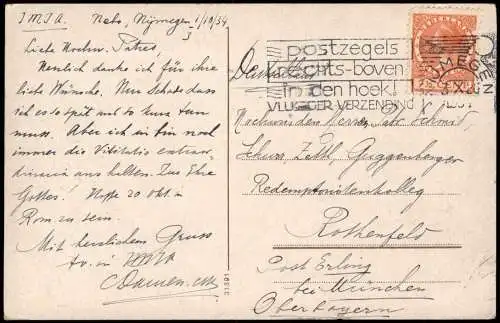 J.M.J.A. Nebo, Nijmegen 1/10/34
Liebe Hochw. Patres,
Herzlich danke ich für ihre
liebe Wünsche. Nur Schade dass
ich es so spät und so kurz tun
muss. Aber ich bin noch
immer des Visitatio extraor-
dinaria aus halten. Zur Ehre
Gottes! Hoffe 20 Okt. in
Rom zu sein.
Mit herzlichem Gruss
tv. in
C Damen
postzegels
rechts-boven
in den hoek!
VLUGGER VERZENDING
NIJMEGEN
NEDERLAND
Hochwürden Herren Patr Schmid,
Schurr Zettl, Guggenberger
Redemptoristenkolleg
Rothenfeld
Post Erling
bei München
Oberbayern
31391